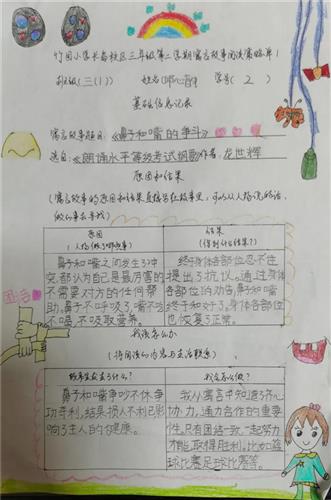 竹园小学长岛校区三年级第二学期寓言故事阅读
班级(三(1)) 姓名 学号(2)
基础信息记录
寓言故事题目:《鼻子和嘴的争斗》
选自:《朗诵水平等级考试纲要》作者:龙世辉
原因和结果
(寓言故事的原因和结果直接写在故事里,可以从人物说的话,
做的事去寻找)
原因
(人物做了哪些事)
鼻子和嘴之间发生了冲
突,都认为自己是最厉害的
不需要对方的任何帮
助,鼻子不呼吸了,嘴不吃
不喝,不吸取营养。
结果
(得到什么结果?)
终于身体各部位忍不住
提出了抗议。通过身体
各部位的劝告,鼻子和嘴
终于和好了。身体各部位
也恢复了正常。
团结
我该怎么办
(将阅读的内容与生活联系)
故事里发生了什么?
鼻子和嘴争吵不休,争
功夺利,结果损人不利己影
响了主人的健康。
我会怎么做?
我从寓言中知道了齐心
协力,通力合作的重要
性。只有团结一致,一起努力
才能取得胜利。比如篮
球比赛足球比赛等。